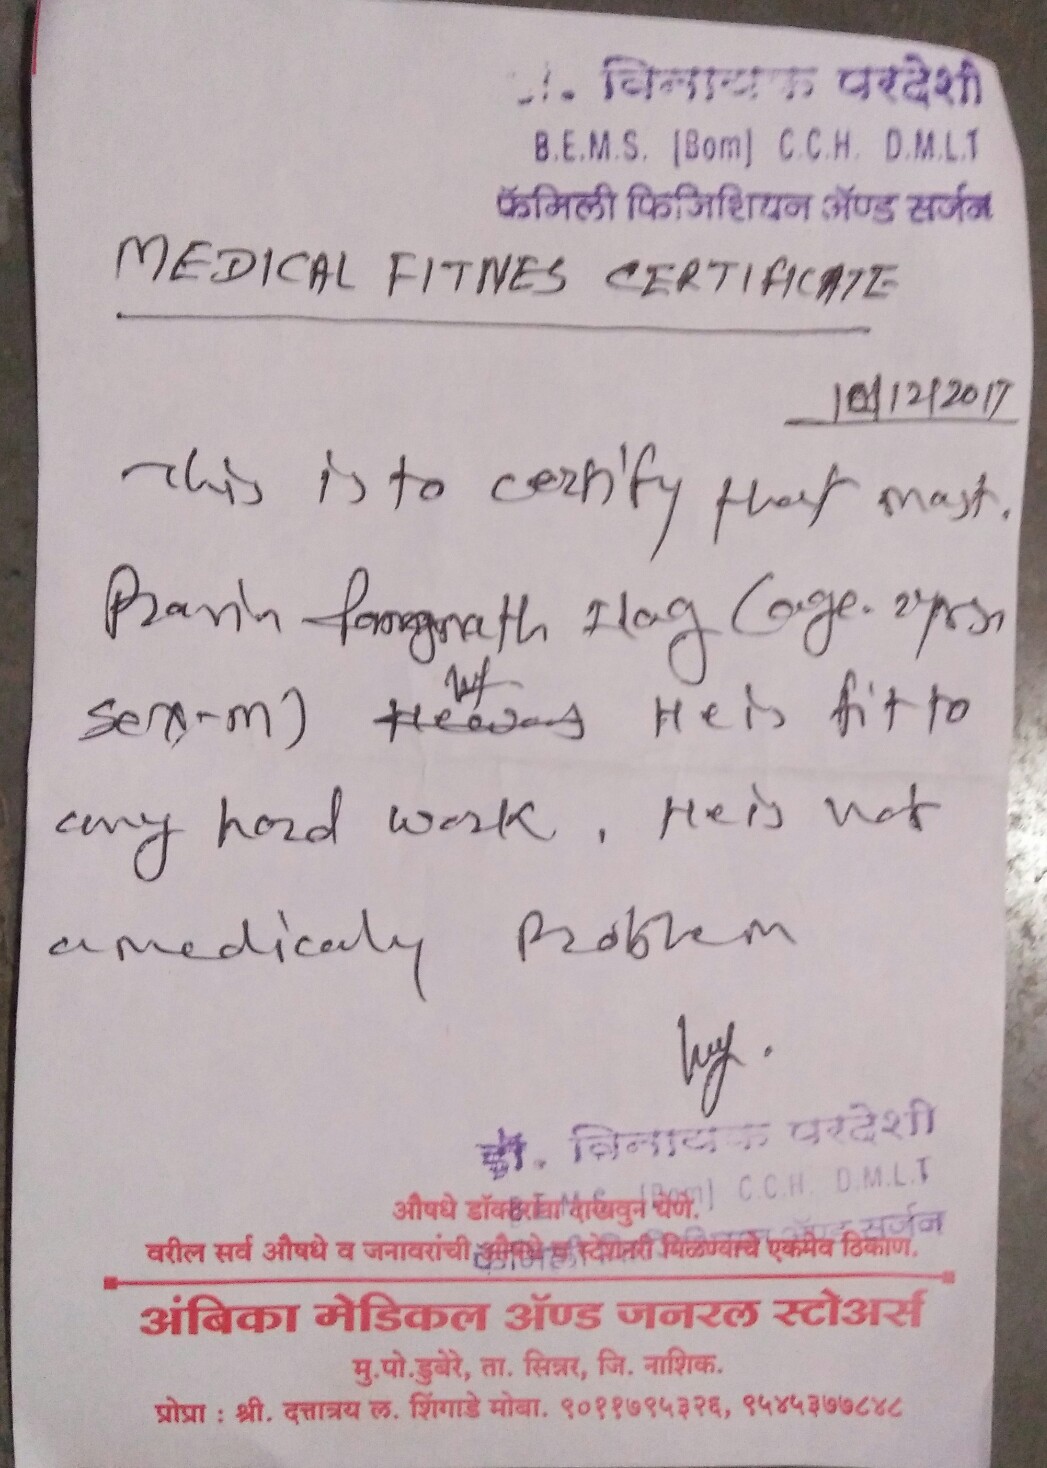 . विनायक परदेशी
B.E.M.S. [Bom] C.C.H. D.M.L.T
फॅमिली फिजिशियन ॲण्ड सर्जन
MEDICAL FITNES CERTIFICATE
10/12/2017
This is to certify that mast.
Pravin Flag (age.
sex-m) He is fit to
any hard work. He is not
a medicaly Problem
डॉ. विनायक परदेशी
B.E.M.S. [Bom] C.C.H. D.M.L.T
औषधे डॉक्टरांना दाखवुन घेणे.
फॅमिली फिजिशियन ॲण्ड सर्जन
वरील सर्व औषधे व जनावरांची औषधे व स्टेशनरी मिळण्याचे एकमेव ठिकाण.
अंबिका मेडिकल ॲण्ड जनरल स्टोअर्स
मु.पो.डुबेरे, ता. सिन्नर, जि. नाशिक.
प्रोप्रा : श्री. दत्तात्रय ल. शिंगाडे मोबा. ९०११७९५३२६, ९५४५३७७८४८